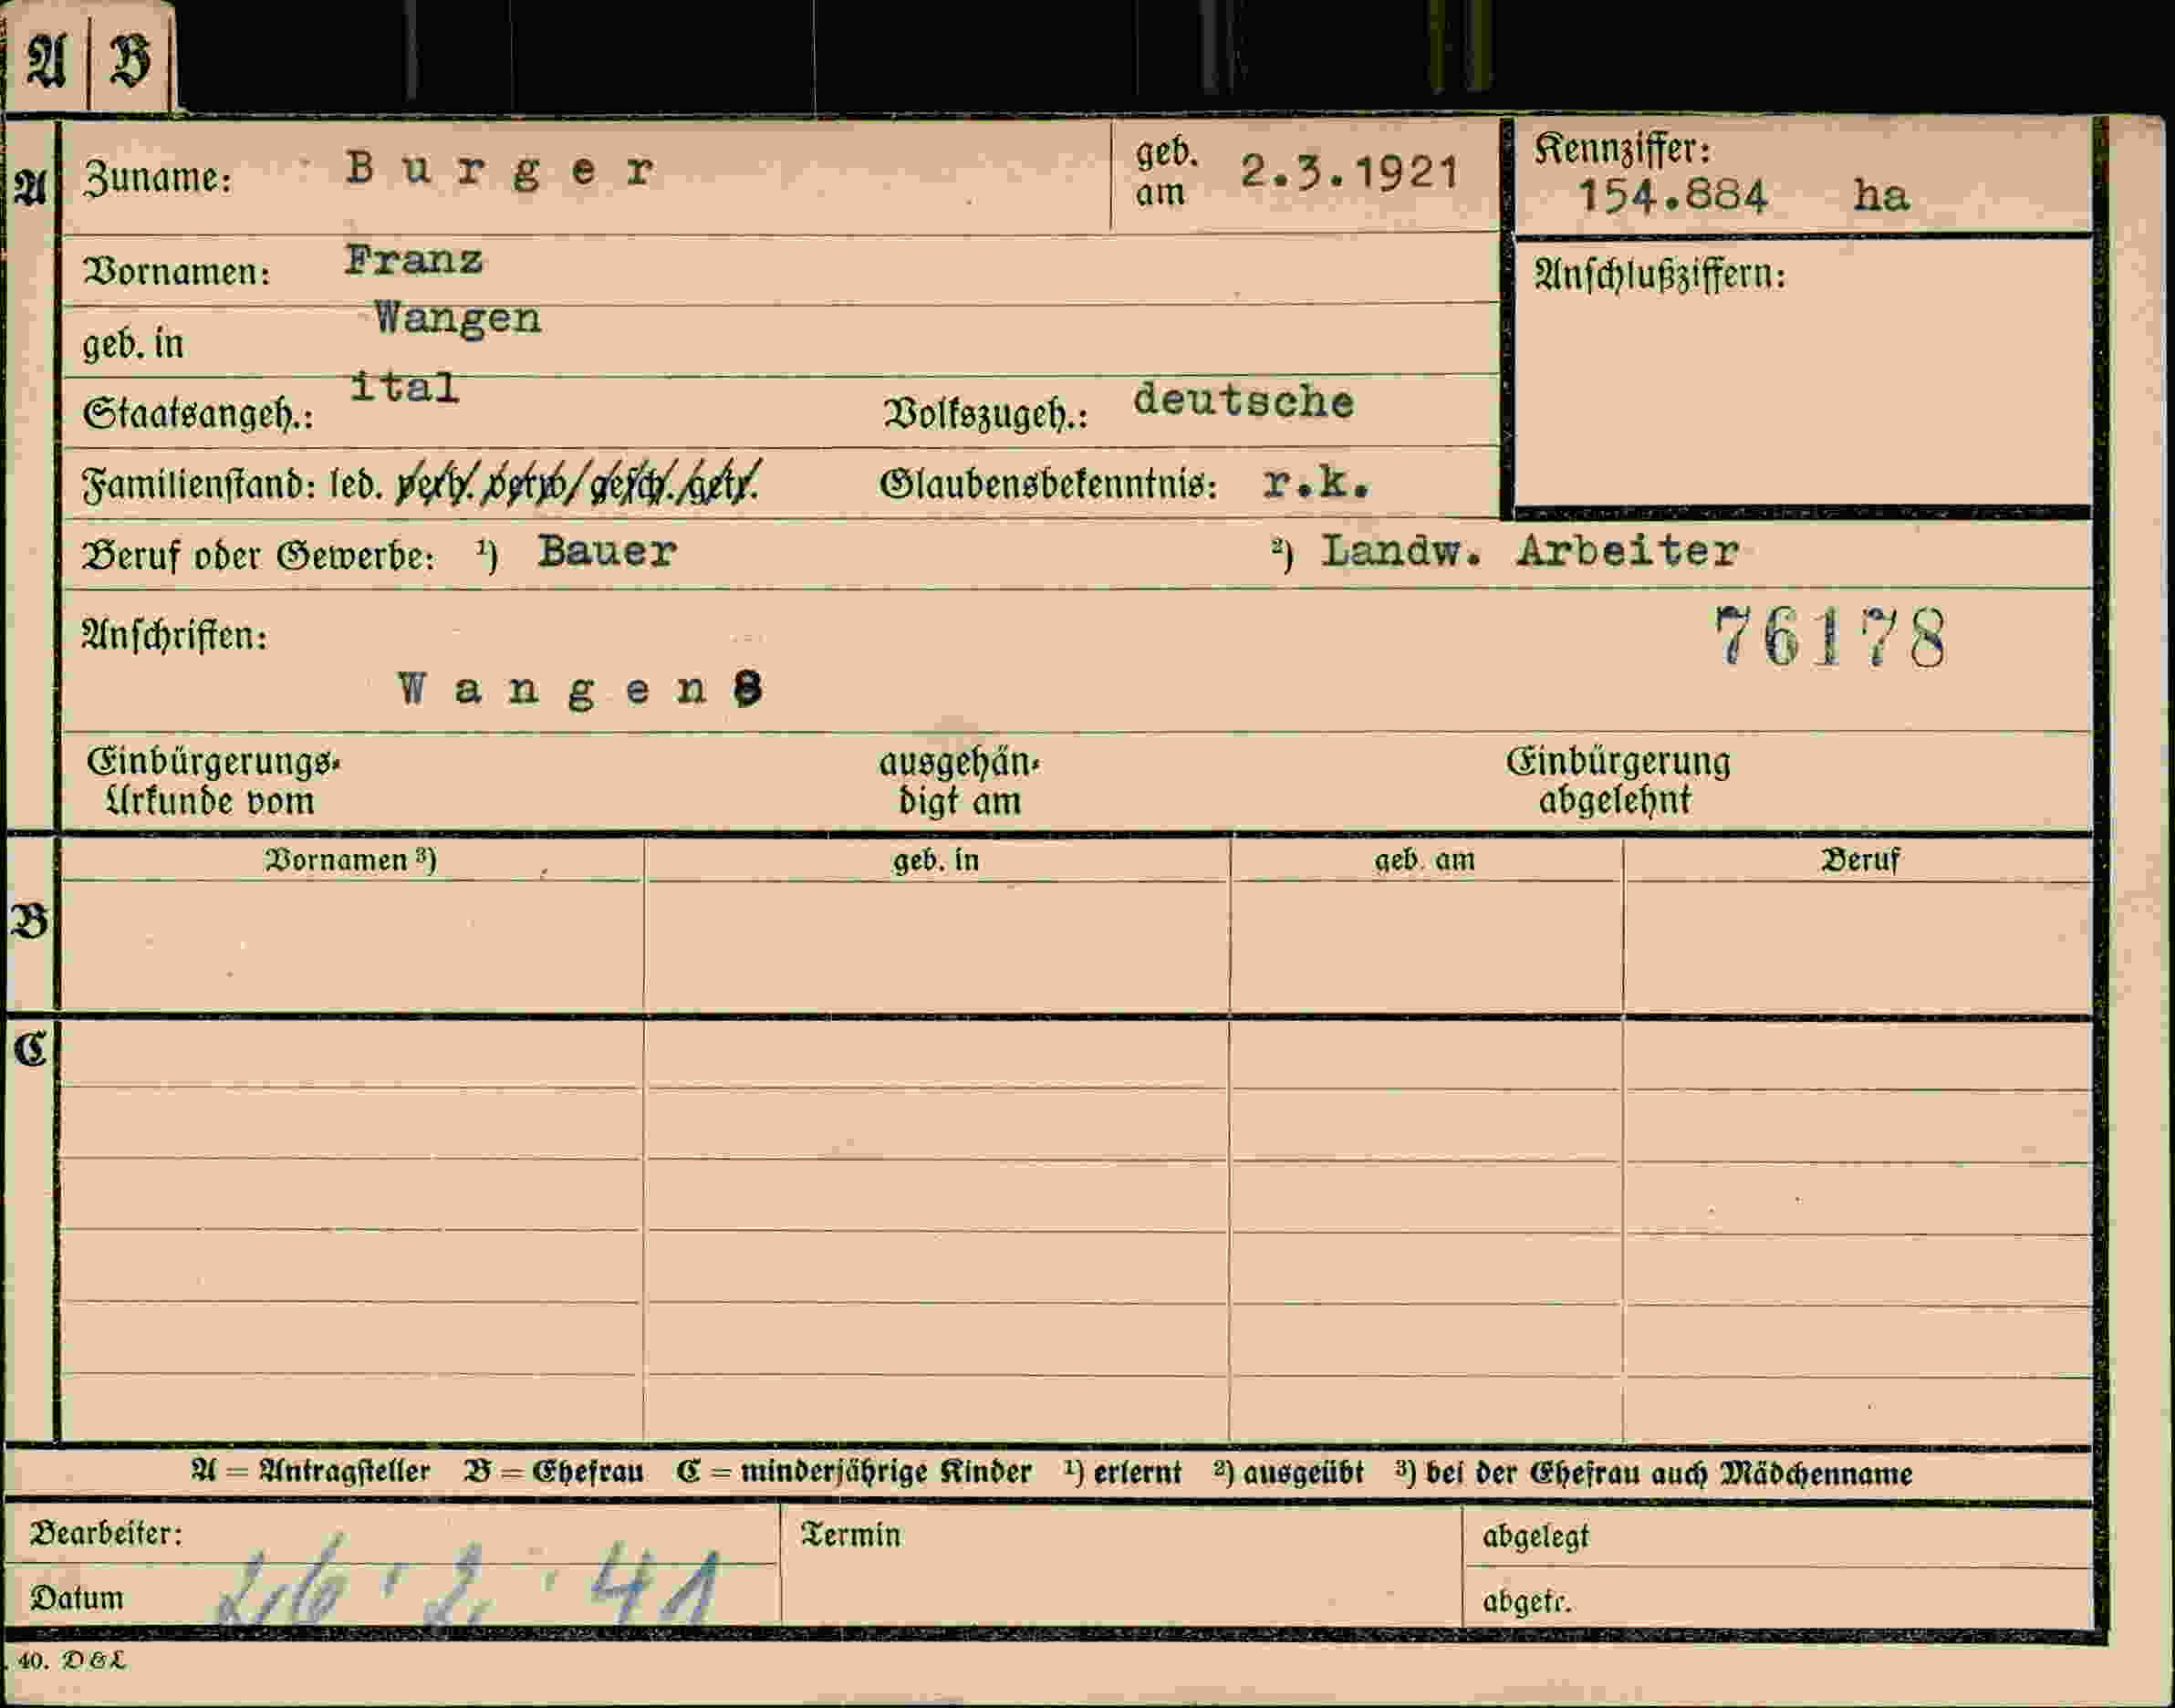 A B
A Zuname: B u r g e r geb. am 2.3.1921 Kennziffer: 154.884 ha
Vornamen: Franz Anschlußziffern:
geb. in Wangen
Staatsangeh.: ital Volkszugeh.: deutsche
Familienstand: led. verh. verw. gesch. getr. Glaubensbekenntnis: r.k.
Beruf oder Gewerbe: ¹) Bauer ²) Landw. Arbeiter
Anschriften: 76178
W a n g e n 8
Einbürgerungs- ausgehän- Einbürgerung
Urkunde vom digt am abgelehnt
Vornamen ³) geb. in geb. am Beruf
B
C
A = Antragsteller B = Ehefrau C = minderjährige Kinder ¹) erlernt ²) ausgeübt ³) bei der Ehefrau auch Mädchenname
Bearbeiter: Termin abgelegt
Datum 26. 2. 41 abgetr.
40. D & L